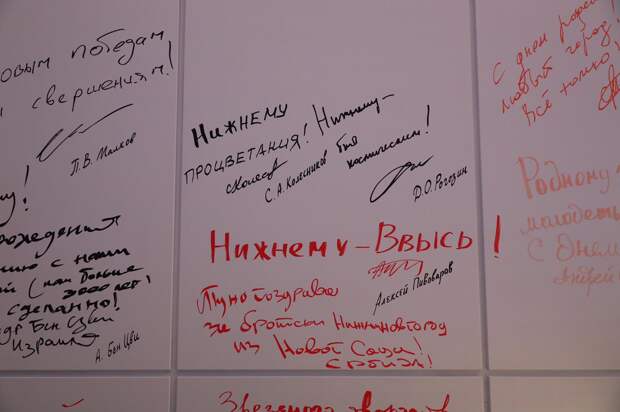 овым победам
и свершениям!
П.В. Малков
му!
рождения
нами
больше
3000 лет!
сделано!
Бен Цви
Израиль
А. Бен Цви
Нижнему
процветания!
С.А. Колесников
Нижнему –
быть
космическим!
Д.О. Рогозин
Нижнему – Ввысь!
Алексей Пивоваров
Пуно поздрава
за братски Нижниновгород
из Новог Сада!
Србија!
С днем рожд
любимый город
Всё только
Родному
молодеть
С Днем
Андрей